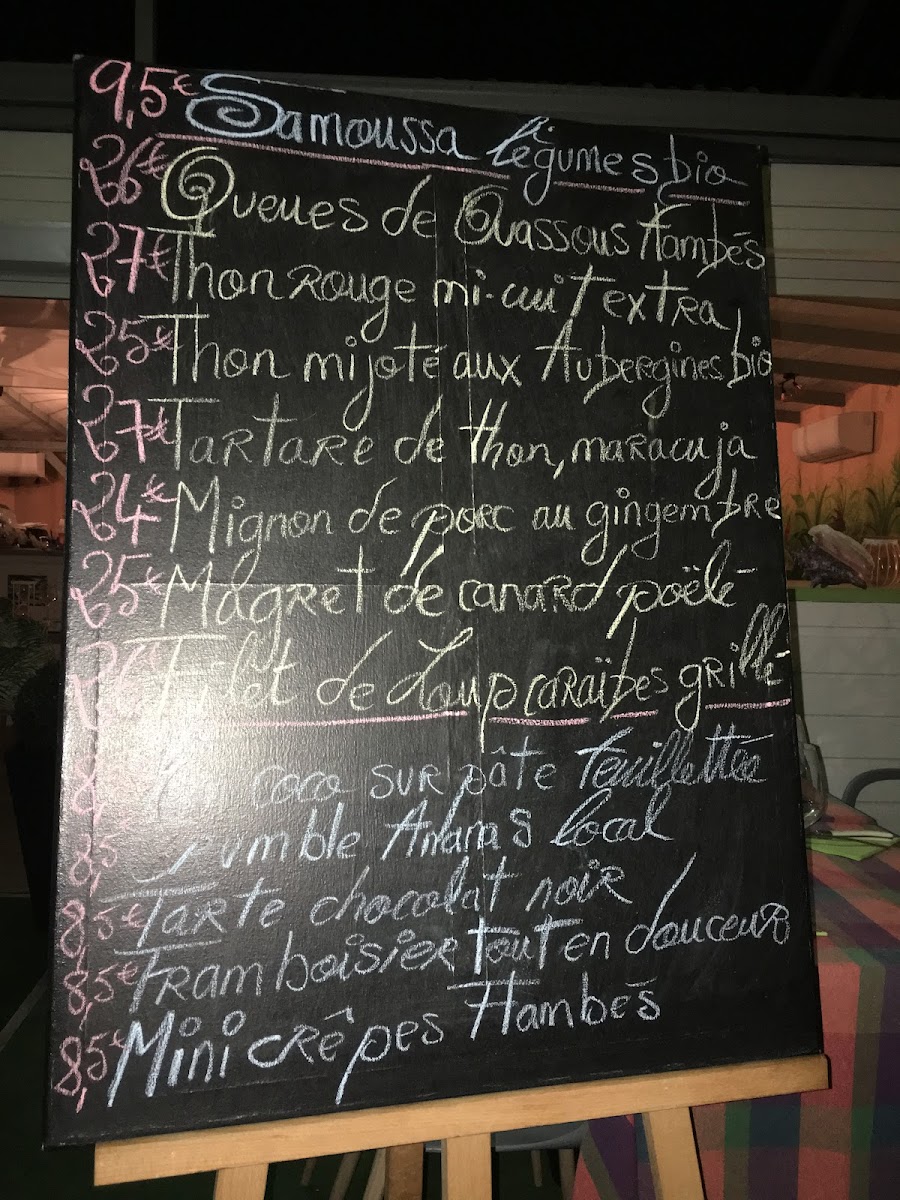 9,5€ Samoussa légumes bio
26€ Queues de Ouassous flambés
27€ Thon rouge mi-cuit extra
25€ Thon mijoté aux Aubergines bio
27€ Tartare de thon, maracuja
24€ Mignon de porc au gingembre
25€ Magret de canard poëlé
Filet de Loup caraïbes grillé
coco sur pâte feuilletée
Ananas local
8,5€ Tarte chocolat noir
8,5€ Framboisier tout en douceur
8,5€ Mini crêpes flambés